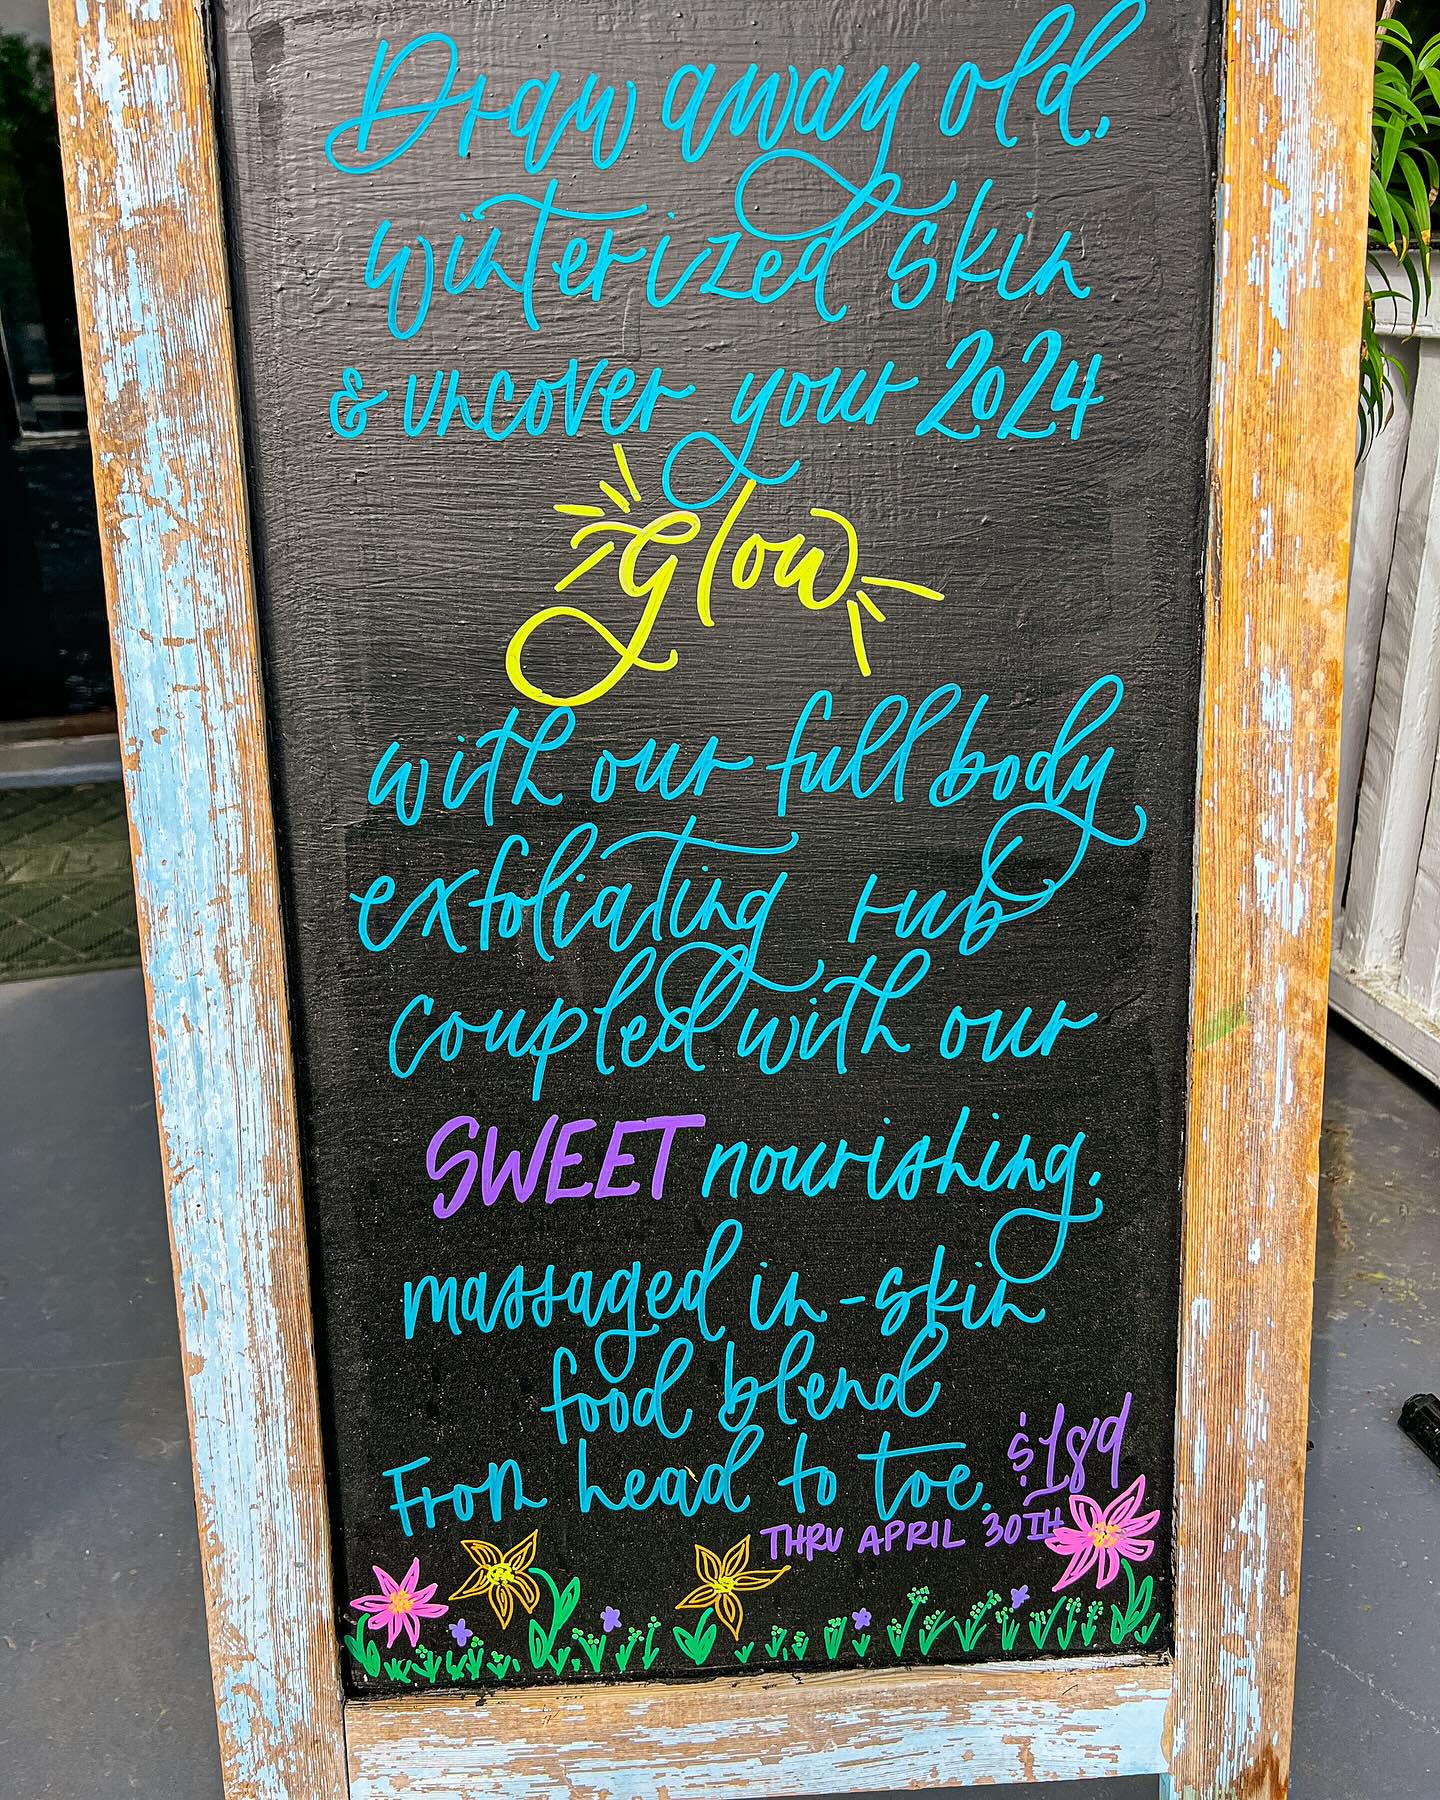 Draw away old,
winterized skin
& uncover your 2024
glow
with our full body
exfoliating rub
coupled with our
SWEET nourishing,
massaged in-skin
food blend
From head to toe. $189
THRU APRIL 30TH